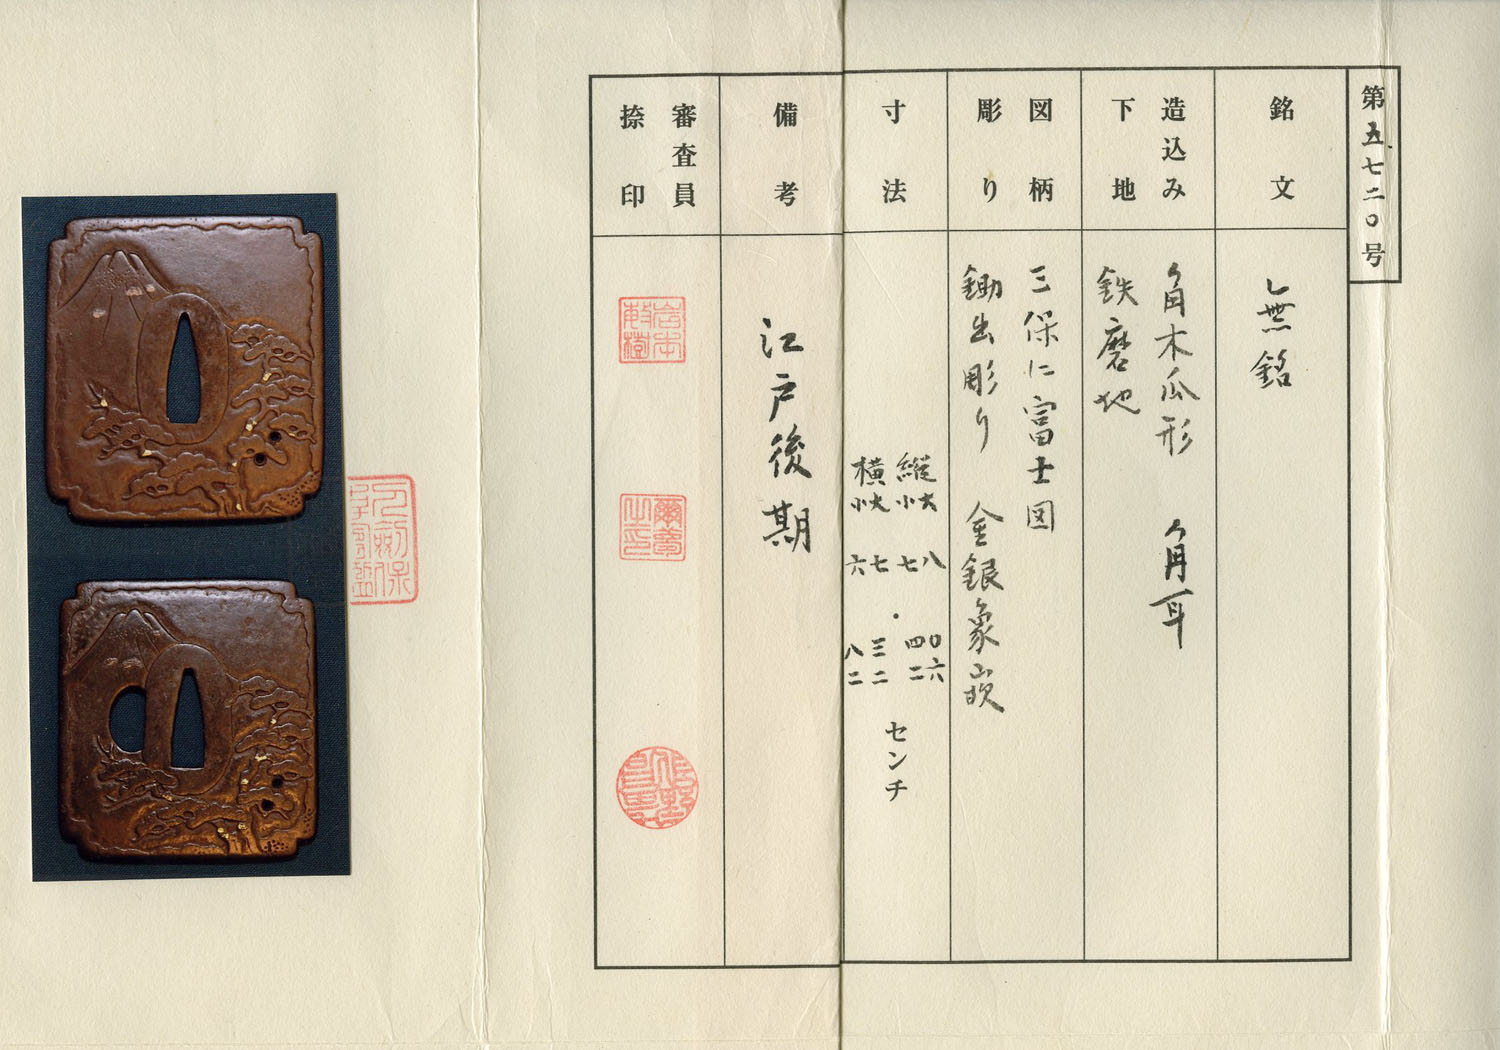 第五七二〇号
銘文
無銘
造込み
下地
角木瓜形 角耳
鉄磨地
図柄
彫り
三保に富士図
鋤出彫り 金銀象嵌
寸法
縦 大 八・〇六
小 七・四二
横 大 七・三二
小 六・八二
センチ
備考
江戸後期
審査員
捺印